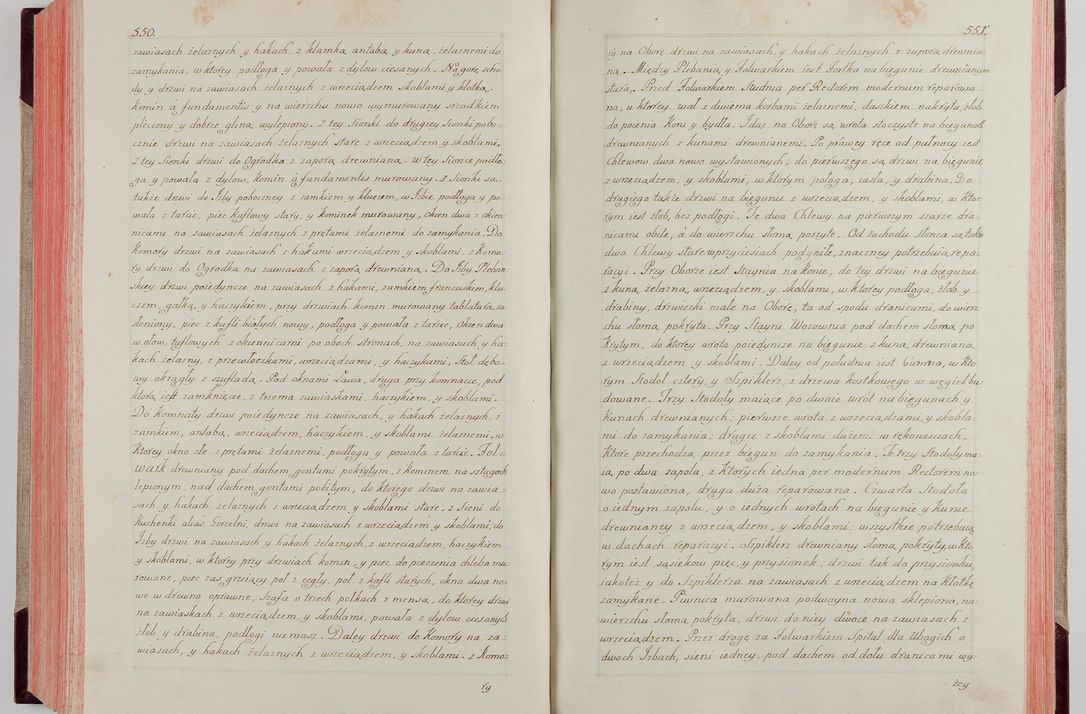 550.
zawiasach żelaznych y hakach, z klamką antabą y kuną, żelaznemi do
zamykania, w ktorey podłoga y powała z dylow ciesanych. Na gorę scho-
dy y drzwi na zawiasach żelaznych z wrzeciądzem skoblami y kłotką.
Komin à fundamentis y na wierzchu nowo wymurowany srzodkiem
pleciony y dobrze gliną wylepiony. Z tey Sionki do drugiey Sionki pobo-
cznie drzwi na zawiasach żelaznych stare z wrzeciądzem y skoblami,
z tey Sionki drzwi do Ogrodka z zaporą drewnianą. W tey Sionce podło-
ga y powała z dylow, komin à fundamentis murowany. Z Sionki są
także drzwi do Izby poboczney z zamkiem y kluczem, w Izbie podłoga y po-
wała z tarcic, piec kaflowy stary, y kominek murowany, okien dwa z okien-
nicami na zawiasach żelaznych z prętami żelaznemi do zamykania. Do
Komory drzwi na zawiasach z hakami wrzeciądzem, y skoblami. z Komo-
ry drzwi do Ogrodka na zawiasach z zaporą drewnianą. Do Izby Pleban-
skiey drzwi poiedyncze na zawiasach z hakami, zamkiem francuskim, klu-
czem, gałką, y haczykiem, przy drzwiach komin murowany tablaturą za-
słoniony, piec z kafli białych nowy, podłoga y powała z tarcic, Okien dwa
w ołow, taflowych z okiennicami po oboch stronach, na zawiasach y ha-
kach żelazny, z przewłoczkami, wrzeciądzami, y haczykami, Stoł dębo-
wy okrągły z szufladą. Pod oknami Ława, druga przy komnacie, pod
ktorą iest zamknięcie, z trzema zawiaskami, haczykiem, y skoblami.
Do komnaty drzwi poiedyncze na zawiasach, y hakach żelaznych, z
zamkiem, antabą, wrzeciądzem, haczykiem, y skoblami żelaznemi, w
ktorey okno złe z prętami żelaznemi, podłoga y powała z tarcic. Fol-
wark drewniany pod dachem gontami pokrytym, z kominem na sztagach
lepionym, nad dachem gontami pobitym, do ktorego drzwi na zawia-
sach y hakach żelaznych z wrzeciądzem, y skoblami stare. z Sieni do
Kuchenki alias Gorzelni, drzwi na zawiasach z wrzeciądzem, y skoblami, do
Izby drzwi na zawiasach y hakach żelaznych, z wrzeciądzem, haczykiem
y skoblami, w ktorey przy drzwiach komin, y piec do pieczenia chleba mu-
rowane, piec zaś grzeiący poł z cegły, poł z kafli starych, okna dwa no-
we w drewno oprawne, Szafa o trzech połkach z mensą, do ktorey drzwi
na zawiaskach z wrzeciądzem, y skoblami, powała z dylow ciesanych
żłob y drabina, podłogi niemasz. Daley drzwi do Komory na za-
wiasach, y hakach żelaznych z wrzeciądzem, y skoblami. z Komo-
ry
551.
ry na Oborę drzwi na zawiasach, y hakach żelaznych z zaporą drewnia-
ną. Między Plebanią y Folwarkiem iest Fortka na biegunie drewnianym
stara. Przed Folwarkiem Studnia per Rectorem modernum reparowa-
na, u ktorey wał z dwiema korbami żelaznemi, daszkiem nakryta, żłob
do poienia Koni y bydła. Idąc na Oborę są wrota stoczyste na biegunach
drewnianych z kunami drewnianemi. Po prawey ręce od pułnocy iest
Chlewow dwa nowo wystawionych; do pierwszego są drzwi na biegunie
z wrzeciądzem, y skoblami, w ktorym połoga, iasła, y drabina. Do
drugiego także drzwi na biegunie z wrzeciądzem, y skoblami, w kto-
rym iest żłob, bez podłogi. Te dwa Chlewy na pierwszym szarze dra-
nicami obite, á do wierzchu słomą poszyte. Od zachodu słonca są także
dwa Chlewy stare w przyciesiach podgniłe, znaczney potrzebuią repa-
racyi. Przy Oborze iest Staynia na konie, do tey drzwi na biegunie
z kuną żelazną, wrzeciądzem, y skoblami, w ktorey podłoga, żłob y
drabiny, drzwiczki małe na Oborę, ta od spodu dranicami, do wierz-
chu słomą pokryta. Przy Stayni Wozownia pod dachem słomą po-
krytym, do ktorey wrota poiedyncze na biegunie z kuną drewnianą
z wrzeciądzem y skoblami. Daley od południa iest Gumno, w kto-
rym Stodoł cztery, y Szpiklerz, z drzewa kostkowego w węgieł bu-
dowane. Trzy Stodoły maiące po dwoie wrot na biegunach y
kunach drewnianych; pierwsze wrota z wrzeciądzami, y skobla-
mi do zamykania; drugie z skoblami dużemi w rękowieciach,
ktore przechodzą, przez biegun do zamykania. Te trzy Stodoły ma-
ią, po dwa zapola, z ktorych iedna per modernum Rectorem no-
wo postawiona, druga duża reparowana. Czwarta Stodoła
o iednym zapolu, y o iednych wrotach na biegunie y kunie
drewnianey z wrzeciądzem, y skoblami. wszystkie potrzebuią
w dachach reparacyi. Szpiklerz drewniany słomą pokryty, w kto-
rym iest sąsiekow pięc, y przysionek; drzwi tak do przysionku,
iakoteż y do Szpiklerza na zawiasach z wrzeciądzem na kłotkę
zamykane. Piwnica murowana podwoyna nowa sklepiona, na
wierzchu słomą pokryta, drzwi do niey dwoie na zawiasach z
wrzeciądzem. Przez drogę za Folwarkiem Szpital dla Ubogich o
dwoch Izbach, sieni iedney, pod dachem od dołu dranicami wy-
żey